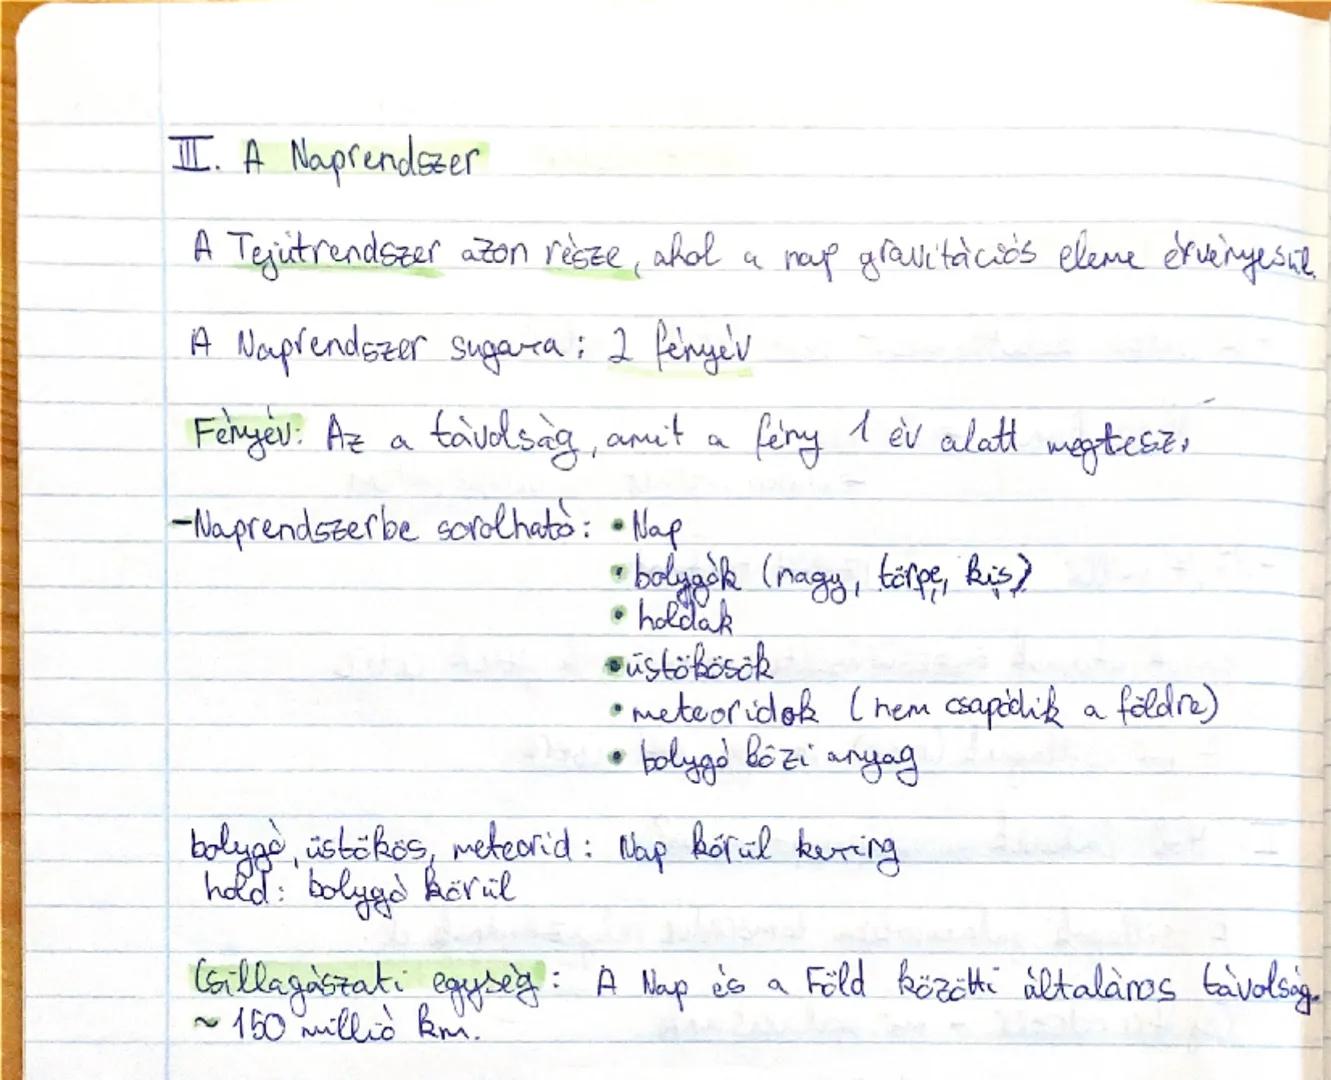 III. A Naprendszer
A Tejútrendszer azon része, ahol a nap gravitációs eleme érvényesül.
A Naprendszer sugara: 2 fényév
Fényév: Az a távolság, amit a fény 1 év alatt megtesz.
-Naprendszerbe sorolható: • Nap
• bolygók (nagy, törpe, kis)
• holdak
• üstökösök
• meteoridok (nem csapódik a földre)
• bolygó közi anyag
bolygó, üstökös, meteorid: Nap körül kering
hold: bolygó körül
Csillagászati egység: A Nap és a Föld közötti általános távolság.
~ 150 millió km.